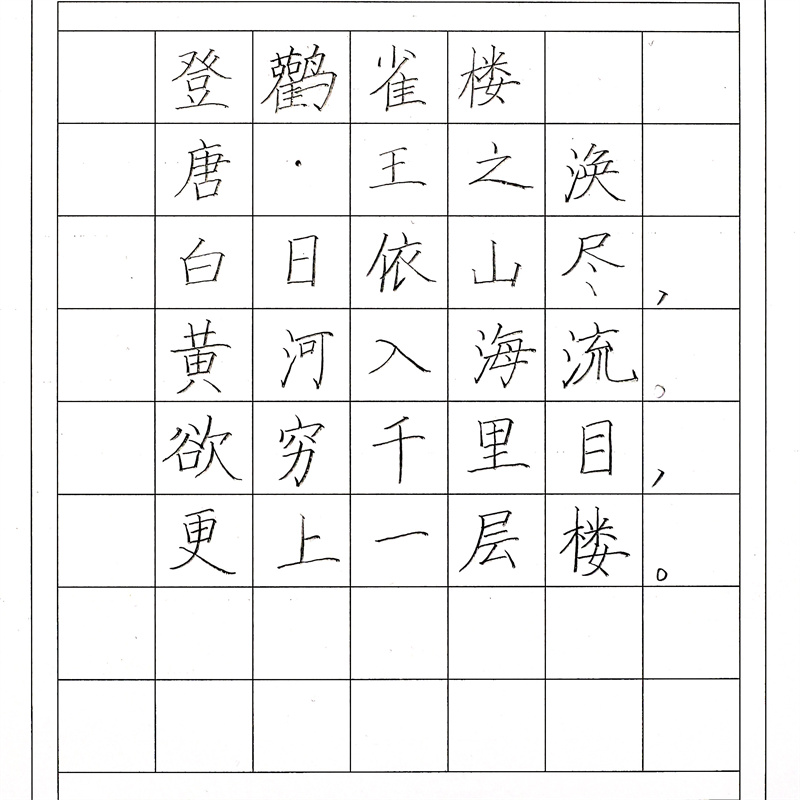 登鸛雀楼
唐·王之涣
白日依山尽，
黄河入海流。
欲穷千里目，
更上一层楼。